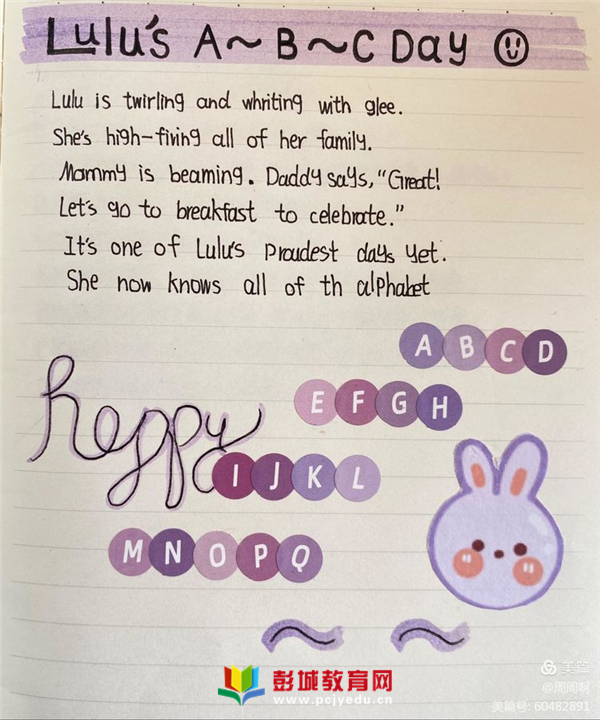 Lulu's A~B~C Day
Lulu is twirling and whriting with glee.
She's high-fiving all of her family.
Mommy is beaming. Daddy says, "Great!
Let's go to breakfast to celebrate."
It's one of Lulu's proudest days yet.
She now knows all of th alphabet
A B C D
E F G H
happy
I J K L
M N O P Q
彭城教育网
www.pcjyedu.cn
美篇
@周周啊
美篇号: 60482891